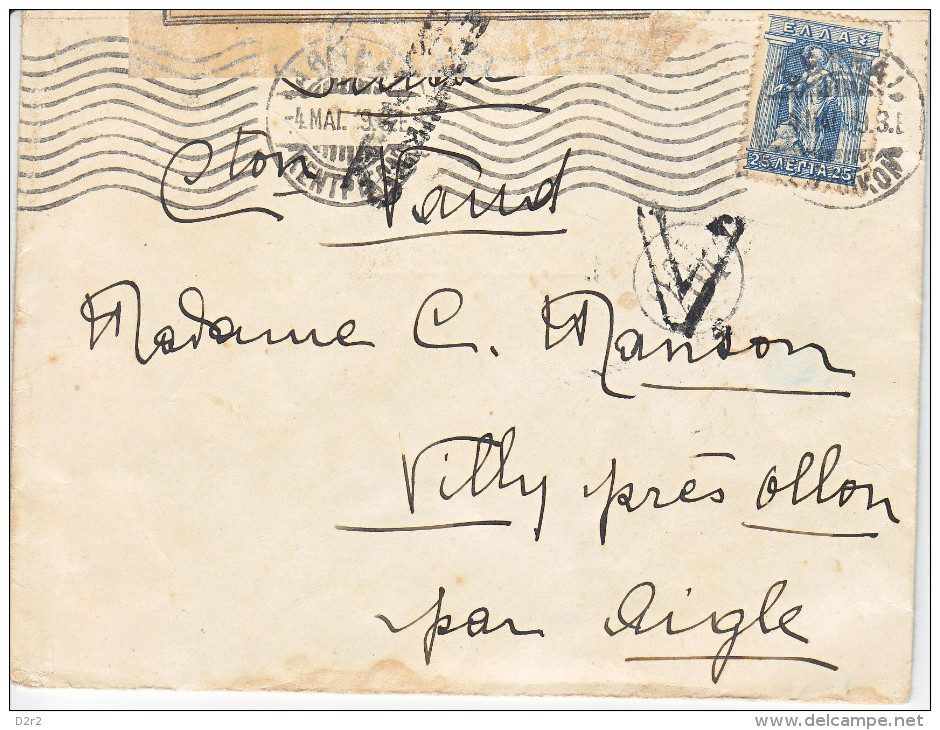 ΕΛΛΑΣ
25 ΛΕΠΤΑ 25
-4 MAI.
Suisse
Cton Vaud
Madame C. Manson
Villy près Ollon
par Aigle
D2r2
delcampe.net